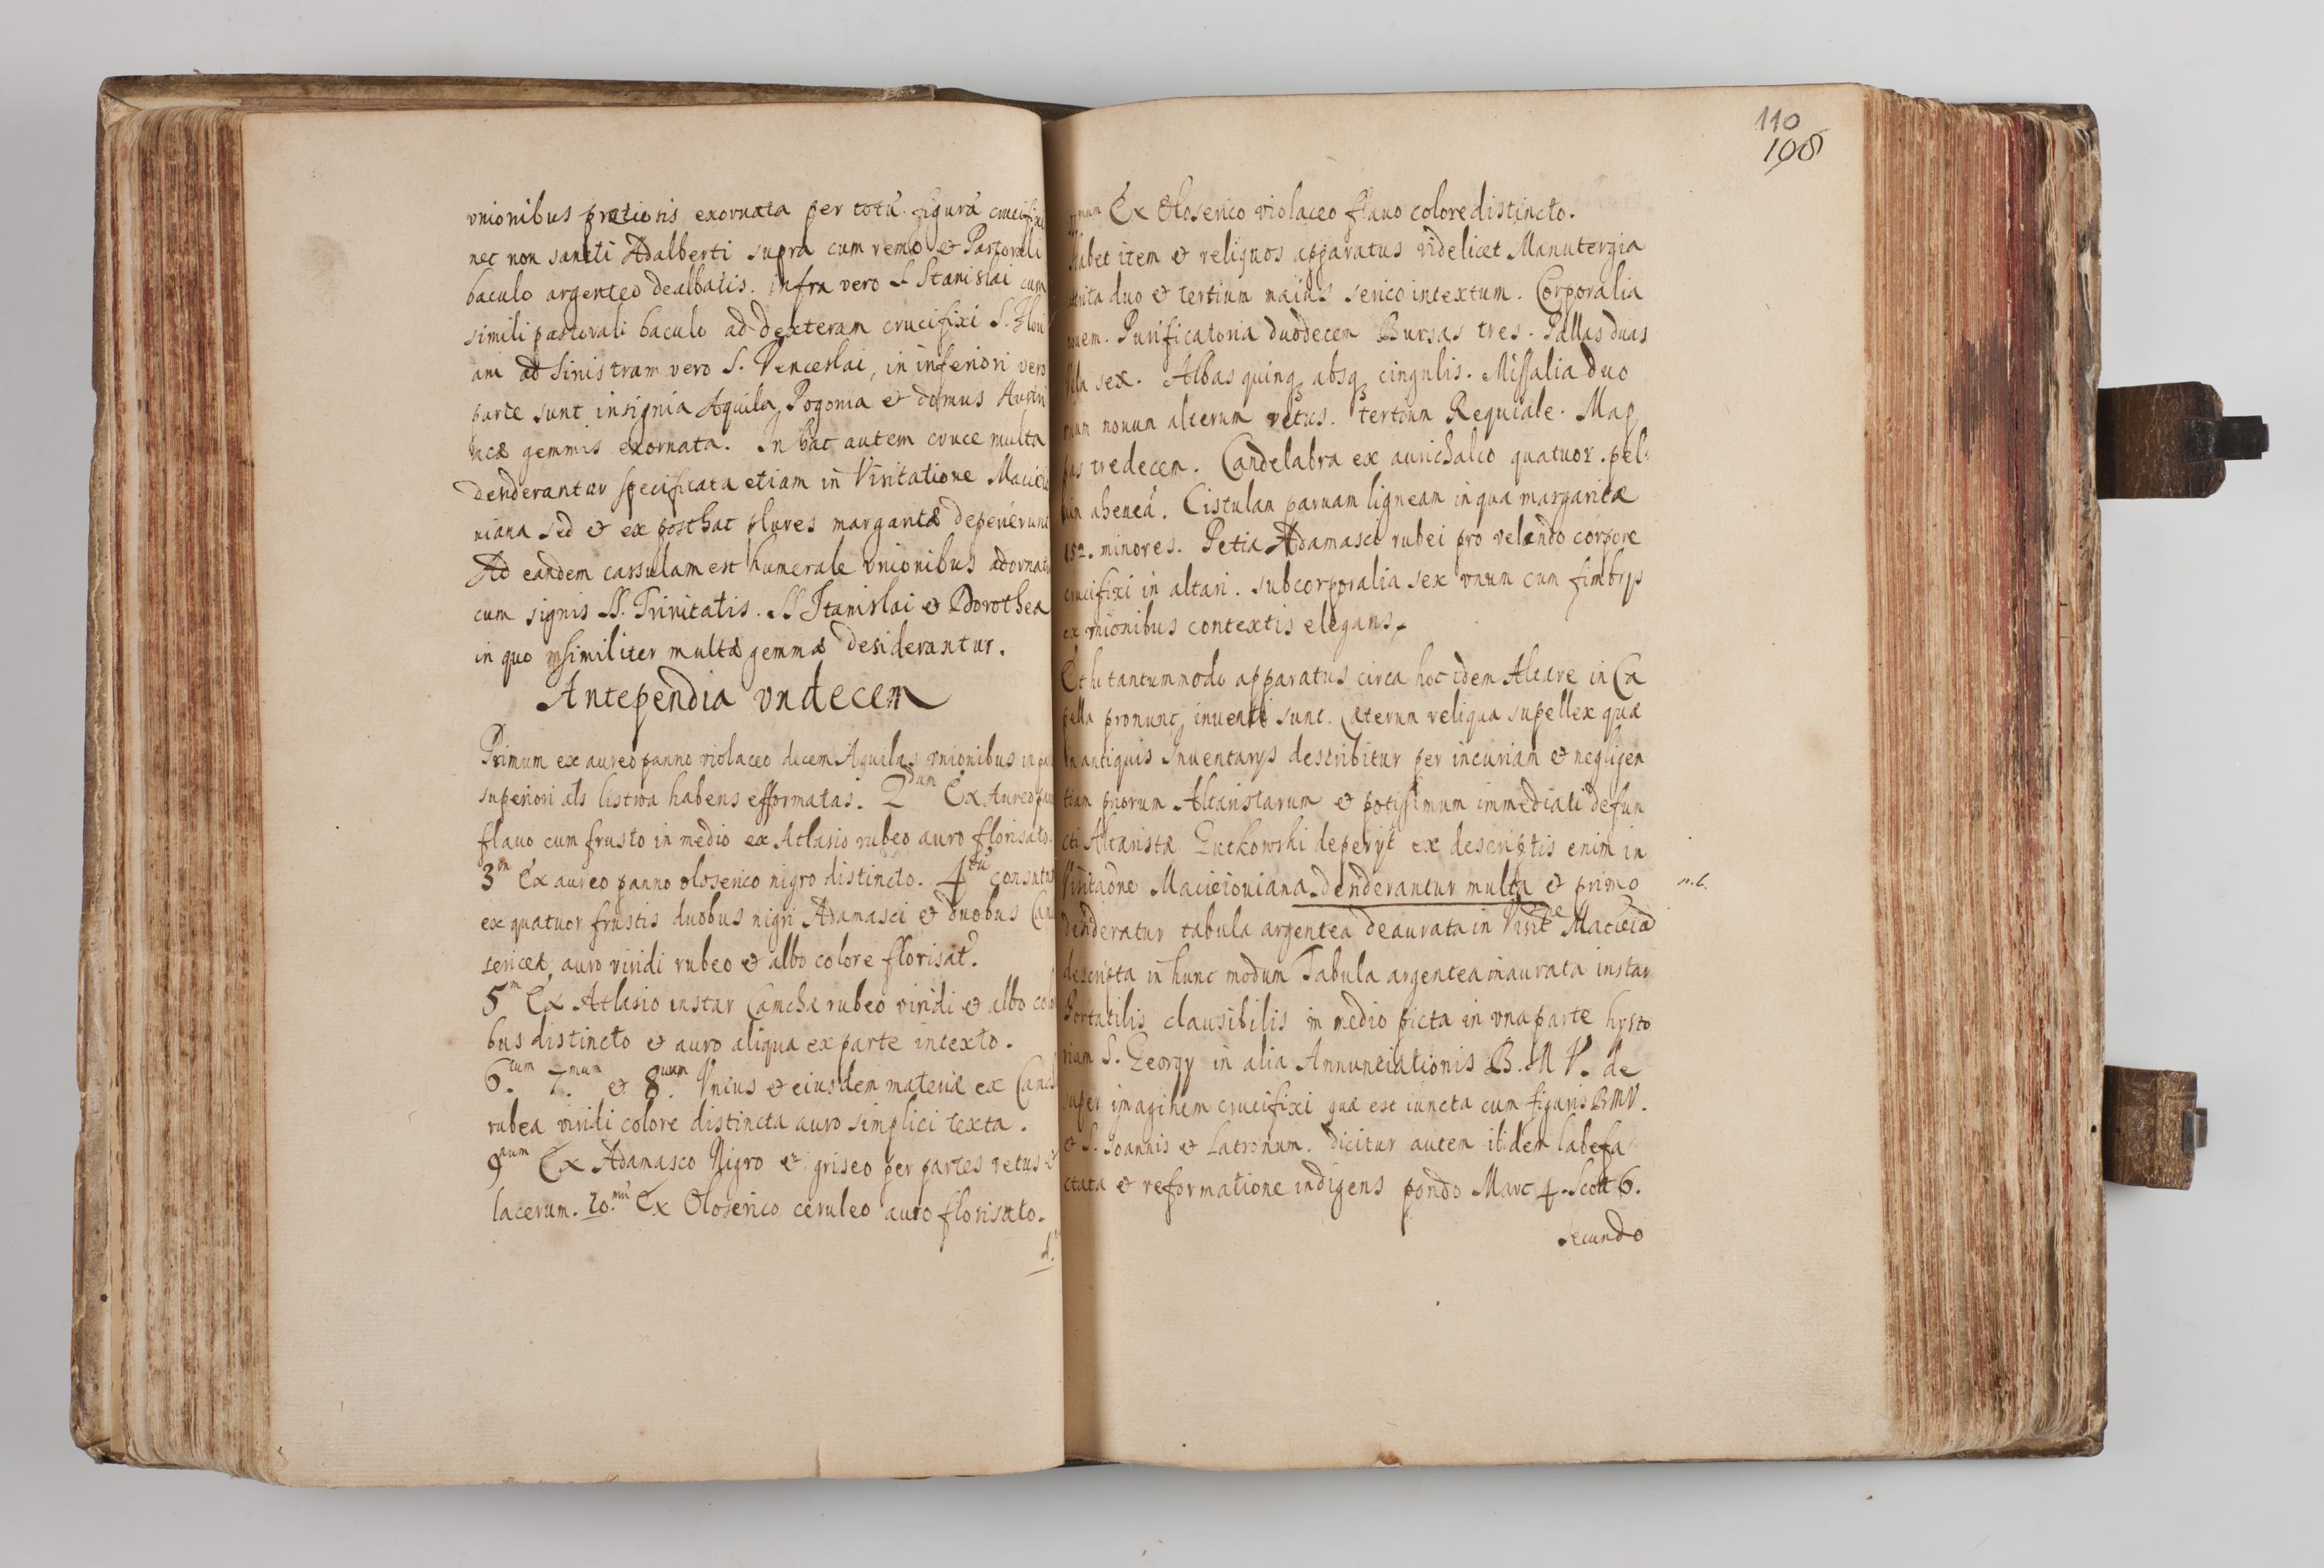 vnionibus pretiosis exornata per totũ figurã crucifixi
nec non sancti Adalberti supra cum remo et Pastorali
baculo argenteo dealbatis. infra vero S. Stanislai cum
simili pastorali baculo ad dexteram crucifixi S. Flori
ani ad sinistram vero S. Venceslai, in inferiori vero
parte sunt insignia Aquila, Pogonia et domus Austri
acæ gemmis exornata. In hac autem cruce multa
desiderantur specificata etiam in Visitatione Macieio
niana sed et ex posthac plures margaritæ deperierunt
Ad eandem cassulam est humerale vnionibus adornatu
cum signis SS. Trinitatis. SS Stanislai et Dorothea
in quo similiter multæ gemmæ desiderantur.
Antependia vndecem
Primum ex aureo panno violaceo decem Aquilas vnionibus in
superiori als listwa habens efformatas. 2dum Ex Aureo
flauo cum frusto in medio ex Atlasio rubeo auro florisato.
3m Ex aureo panno oloserico nigro distincto. 4tũ
ex quatuor frustis duobus nigri Adamasci et duobus
sericea auro viridi rubeo et albo colore florisat.
5m Ex Atlasio instar Camcha rubeo viridi et albo colo
bus distincto et auro aliqua ex parte intexto.
6.tum 7.mum et 8.uum Vnius et eiusdem materiæ ex Camch
rubea viridi colore distincta auro simplici texta.
9num Ex Adamasco Nigro et griseo per partes vetus et
lacerum. 10.mũ Ex Oloserico ceruleo auro florisato.
110
108
Ex Oloserico violaceo flauo colore distincto.
Habet item et reliquos apparatus videlicet Manutergia
duo et tertium maius serico intextum. Corporalia
nouem. Purificatoria duodecem Bursas tres. Pallas duas
Vela sex. Albas quinq absq cingulis. Missalia duo
vnum nouum alterum vetus. tertium Requiale. Map
pas tredecem. Candelabra ex aurichalco quatuor. pel
uim aheneã. Cistulam paruam ligneam in qua margaritæ
152. minores. Petia Adamasci rubei pro velando corpore
crucifixi in altari. subcorporalia sex vnum cum fimbrys
ex vnionibus contextis elegans.
Et hi tantummodo apparatus circa hoc idem Altare in Ca
pella pronunc inuenti sunt. Cæterum reliqua supellex quæ
in antiquis Inuentarys describitur per incuriam et negligen
tiam priorum Altaristarum et potissimum immediati defun
cti Altaristæ Zutkowski deperyt ex descriptis enim in
Visitaõne Macieiouiana desiderantur multa et primo
n.b.
desideratur tabula argentea deaurata in Visitne Macieio
descripta in hunc modum Tabula argentea inaurata instar
Portatilis clausibilis in medio picta in vna parte hysto
riam S. Georgy in alia Annunciationis B. M V. de
super imaginem crucifixi quæ est iuncta cum figuris BMV.
et S. Joannis et Latronum. dicitur autem ibidem labefa
ctata et reformatione indigens pondo Marc 4. Scott 6.
secundo